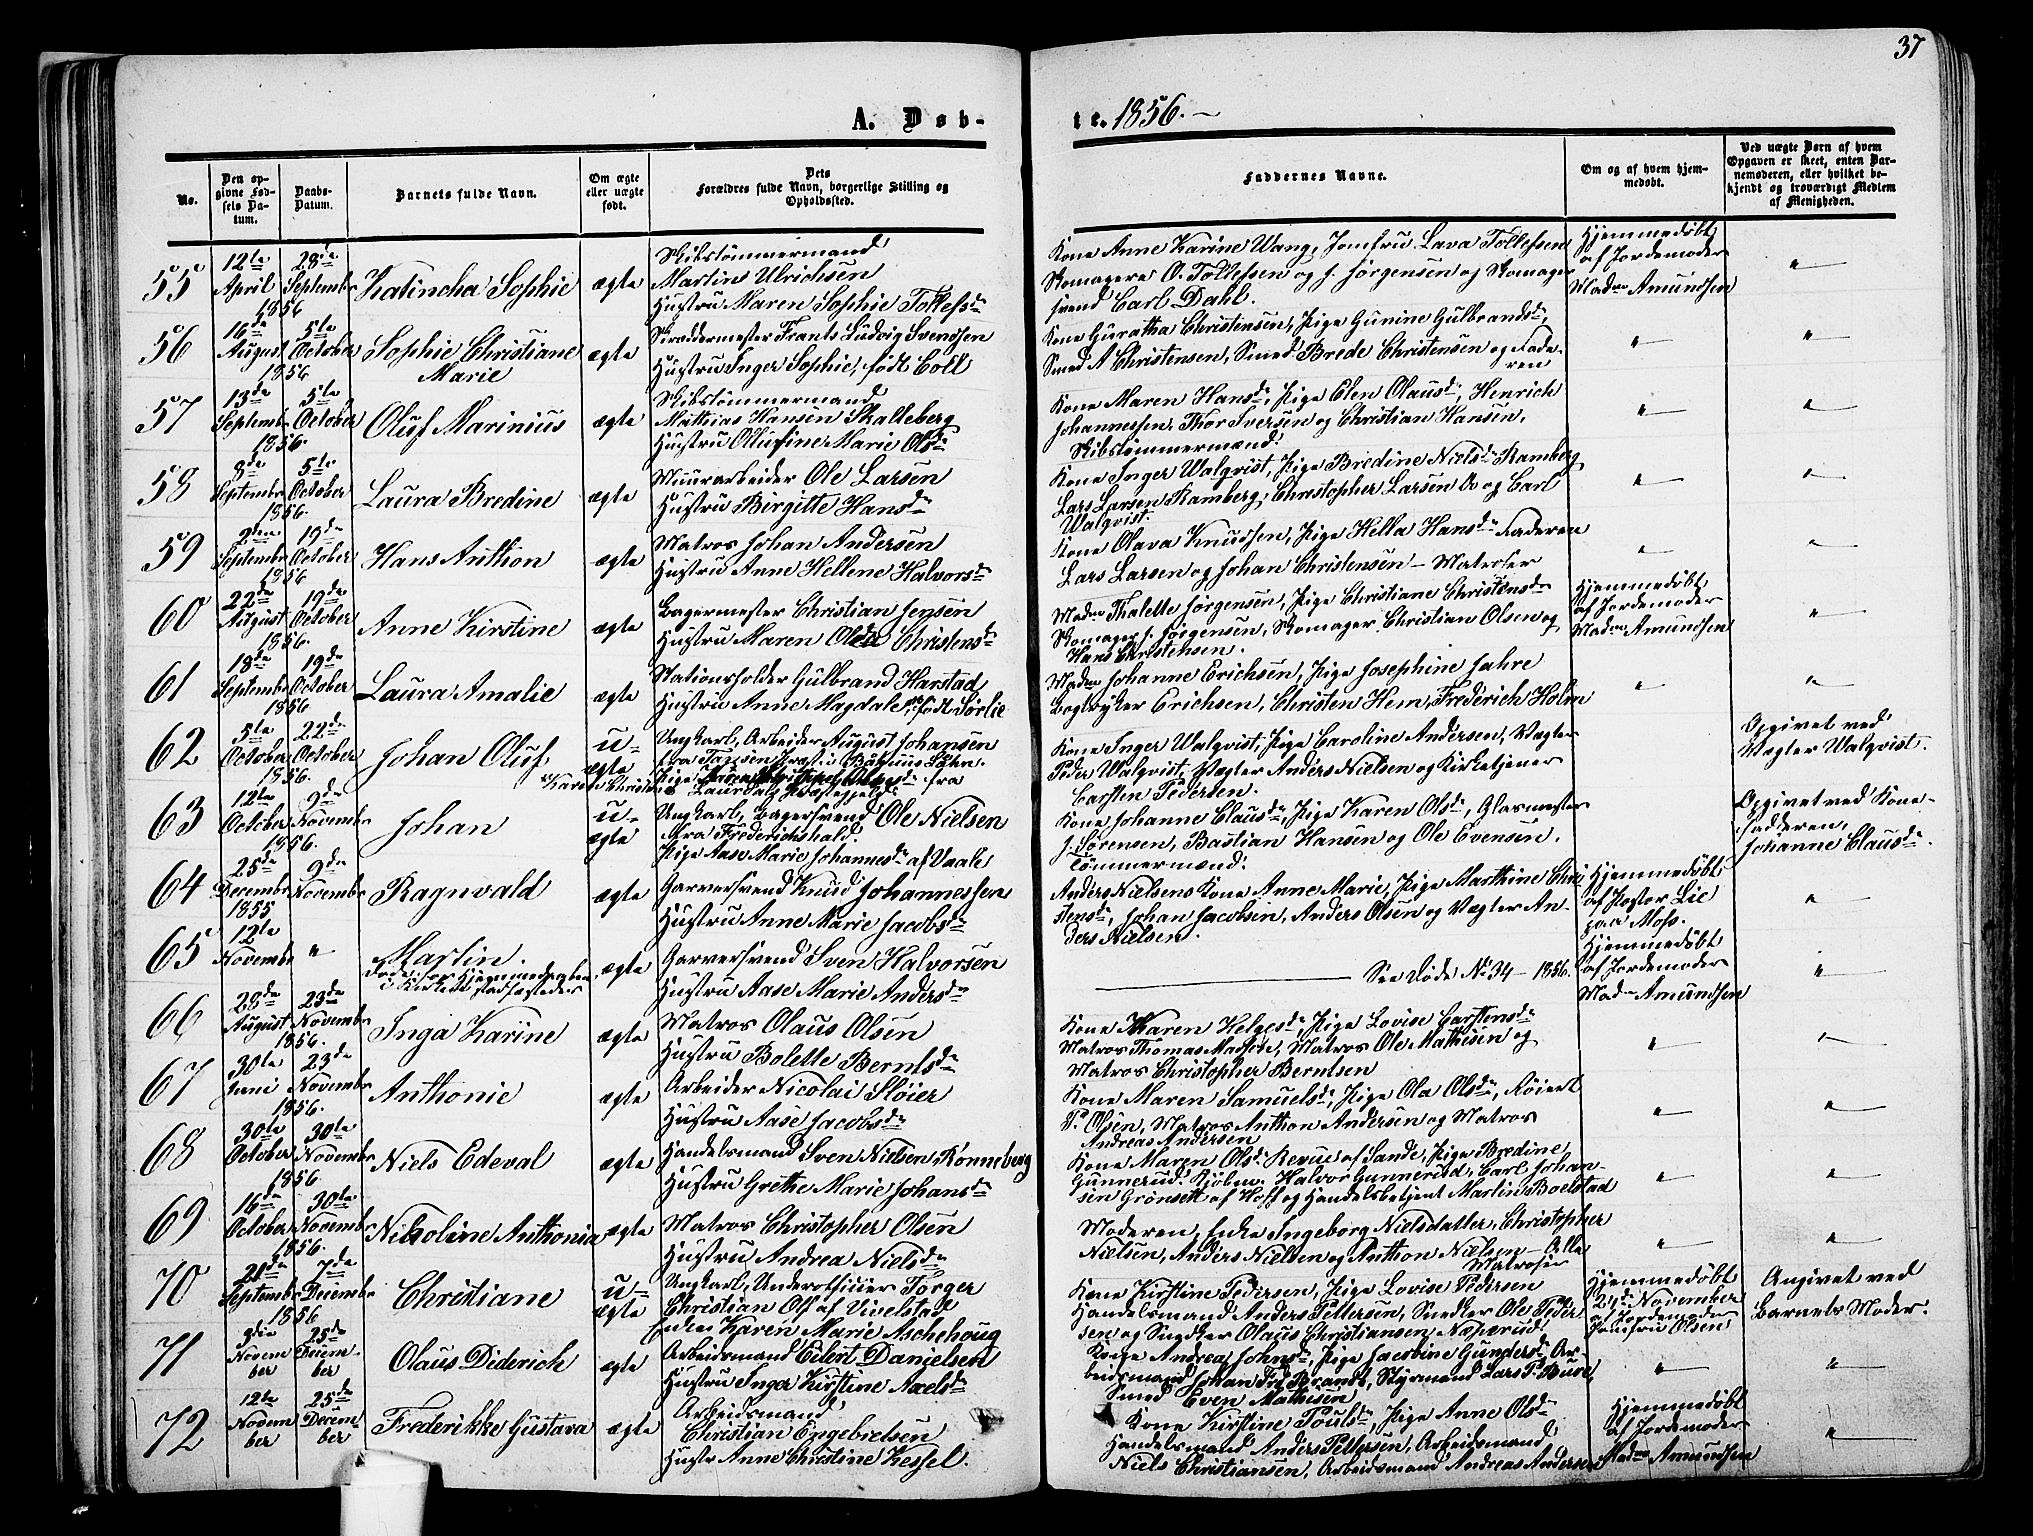 37
A. Døb-
te. 1856.
No.
Den op-
givne Fød-
sels Da-
tum.
Daabs-
Datum.
Barnets fulde Navn.
Om ægte
eller uægte
født.
Dets
Forældres fulde Navn, borgerlige Stilling og
Opholdssted.
Faddernes Navne.
Om og af hvem hjem-
medøbt.
Ved uægte Børn af hvem
Opgaven er skeet, enten Bar-
nemoderen, eller hvilket be-
kjendt og troværdigt Medlem
af Menigheden.
55
12te
April
1856
28de
Septembr
Katincha Sophie
ægte
Skibstømmermand
Martins Ulrichsen
Hustru Maren Sophie Tollefsdr
Kone Anne Karine Wang, Jomfru Lava Tollefsen
Skomagere O. Tollefsen og J. Jørgensen og Skomager
svend Carl Dahl.
Hjemmedøbt
af Jordemoder
Madm Amundsen
"
56
16de
August
1856
5te
October
Sophie Christiane
Marie
ægte
Skræddermester Frants Ludvig Svendsen
Hustru Inger Sophie, født Coll
Kone Guratha Christensen, Pige Gunine Gulbrandsdr,
Smed A Christensen, Smed Brede Christensen og Fade-
ren
"
"
57
13de
Septembr
1856.
5te
October
Oluf Marinius
ægte
Skibstømmermand
Mathias Hansen Skalleberg
Hustru Olufine Marie Olsdr
Kone Maren Hansdr, Pige Elen Olausdr, Henrich
Johannessen, Thor Iversen og Christian Hansen,
Skibstømmermænd.
"
"
58
8de
Septembr
1856.
5te
October
Laura Bredine
ægte
Muurarbeider Ole Larsen
Hustru Birgitte Hansdr
Kone Inger Walqvist, Pige Bredine Nielsdr Ramberg
Lars Larsen Ramberg, Christopher Larsen O. og Carl
Walqvist.
"
"
59
2den
Septembr
1856
19de
October
Hans Anthon
ægte
Matros Johan Andersen
Hustru Anne Hellene Halvorsdr
Kone Olava Knudsen, Pige Hella Hansdr Faderen
Lars Larsen og Johan Christensen – Matroser
"
"
60
22de
August
1856.
19de
October
Anne Kirstine
ægte
Bagermester Christian Jensen
Hustru Maren Olea Christensdr
Madm Thalette Jørgensen, Pige Christiane Christensdr
Skomager J. Jørgensen, Skomager Christian Olsen og
Hans Christensen.
Hjemmedøbt
af Jordemoder
Madm Amundsen
"
61
18de
Septembr
1856
19de
October
Laura Amalie
ægte
Stationsholder Gulbrand Harstad
Hustru Anne Magdalene født Sørlie
Madm Johanne Erichsen, Pige Josephine Jahre
Bogtrykker Erichsen, Christen Hem, Frederich Holm
"
"
62
5te
October
1856.
22de
October
Johan Oluf
u-
ægte
Ungkarl, Arbeider August Johansen
Karen Christine
fra
Kone Inger Walqvist, Pige Caroline Andersen, Vægter
Peder Walqvist, Vægter Anders Nielsen og Kirketjener
Carsten Pedersen.
Opgivet ved
Vægter Walqvist.
63
12te
October
1856.
9de
Novembr
Johan
u-
ægte
Ungkarl, Bagersvend Ole Nielsen
fra Frederichshald.
Pige Aase Marie Johannesdr af Vaale
Kone Johanne Clausdr, Pige Karen Olsdr, Glasmester
J. Sørensen, Bastian Hansen og Ole Evensen.
Tømmermænd.
Opgivet ved Kone-
fadderen,
Johanne Clausdr.
64
25de
Decembr
1855
9de
Novembr
Ragnvald
ægte
Garversvend Knud Johannessen
Hustru Anne Marie Jacobsdr
Anders Nielsens Kone Anne Marie, Pige Marthine Chri-
stensdr, Johan Jacobsen, Anders Olsen og Vægter An-
ders Nielsen.
Hjemmedøbt
af Pastor Lie
paa Moss.
"
65
12te
Novembr
"
Martin.
ægte
Garversvend Sven Halvorsen
Hustru Aase Marie Andersdr
See Døde No 34 – 1856.
Hjemmedøbt
af Jordemoder
Madm Amundsen
"
66
28de
August
1856.
23de
Novembr
Inga Karine
ægte
Matros Olaus Olsen
Hustru Bolette Berntsdr
Kone Karen Helgesdr, Pige Lovise Carstensdr
Matros Thomas Madsen, Matros Ole Mathisen og
Matros Christopher Berntsen
"
"
67
30te
Juni
1856.
23de
Novembr
Anthonie
ægte
Arbeider Nicolai Sløier
Hustru Aase Jacobsdr
Kone Maren Samuelsdr, Pige Ola Olsdr, Røiert
P. Olsen, Matros Anthon Andersen og Matros
Andreas Andersen
"
"
68
30te
October
1856
30te
Novembr
Niels Edeval
ægte
Handelsmand Sven Nielsen, Rønneberg
Hustru Grethe Marie Johansdr
Kone Maren Olsdr Revue af Sande, Pige Bredine
Gunnerud. Kjøbm. Halvor Gunnerud, Carl Johan-
sen Grønsett af Hoff og Handelsbetjent Martin Boelstad
"
"
69
16de
October
1856.
30te
Novembr
Nikoline Anthonia
ægte
Matros Christopher Olsen
Hustru Andrea Nielsdr
Moderen, Enke Ingeborg Nielsdatter, Christopher
Nielsen, Anders Nielsen og Anthon Nielsen – Alle
Matroser
"
"
70
21de
Septembr
1856
7de
Decembr
Christiane
u-
ægte
Ungkarl, Underofficier Torger
Christian Olsen af Vivelstad
Enke Karen Marie Aschehoug
Kone Kirstine Pedersen, Pige Lovise Pedersen
Handelsmand Anders Pettersen, Snedker Ole Peder-
sen og Snedker Olaus Christiansen Næperud.
Hjemmedøbt
24de November
af Jordemoder
Jomfru Olsen
Angivet ved
Barnets Moder.
71
3die
Novem
ber
25de
Decem-
ber
Olaus Diderich
ægte
Arbeidsmand Eilert Danielsen
Hustru Inger Kirstine Axelsdr
Kone Andrea Johnsdr, Pige Jacobine Gundersdr Ar-
beidsmand Johan Fr: Brandt, Styrmand Lars P. Bure,
Smed Even Mathisen
"
"
72
12te
Novem
ber
25de
Decem
ber
Frederikke Gustava
ægte
Arbeidsmand
Christian Engebretsen
Hustr Anne Christine Kessel.
Kone Kirstine Poulsdr, Pige Anne Olsdr
Handelsmand Anders Pettersen, Arbeidsmand
Niels Christiansen, Arbeidsmand Andreas Andersen
Hjemmedøbt
af Jordemoder
Madm Amundsen
"